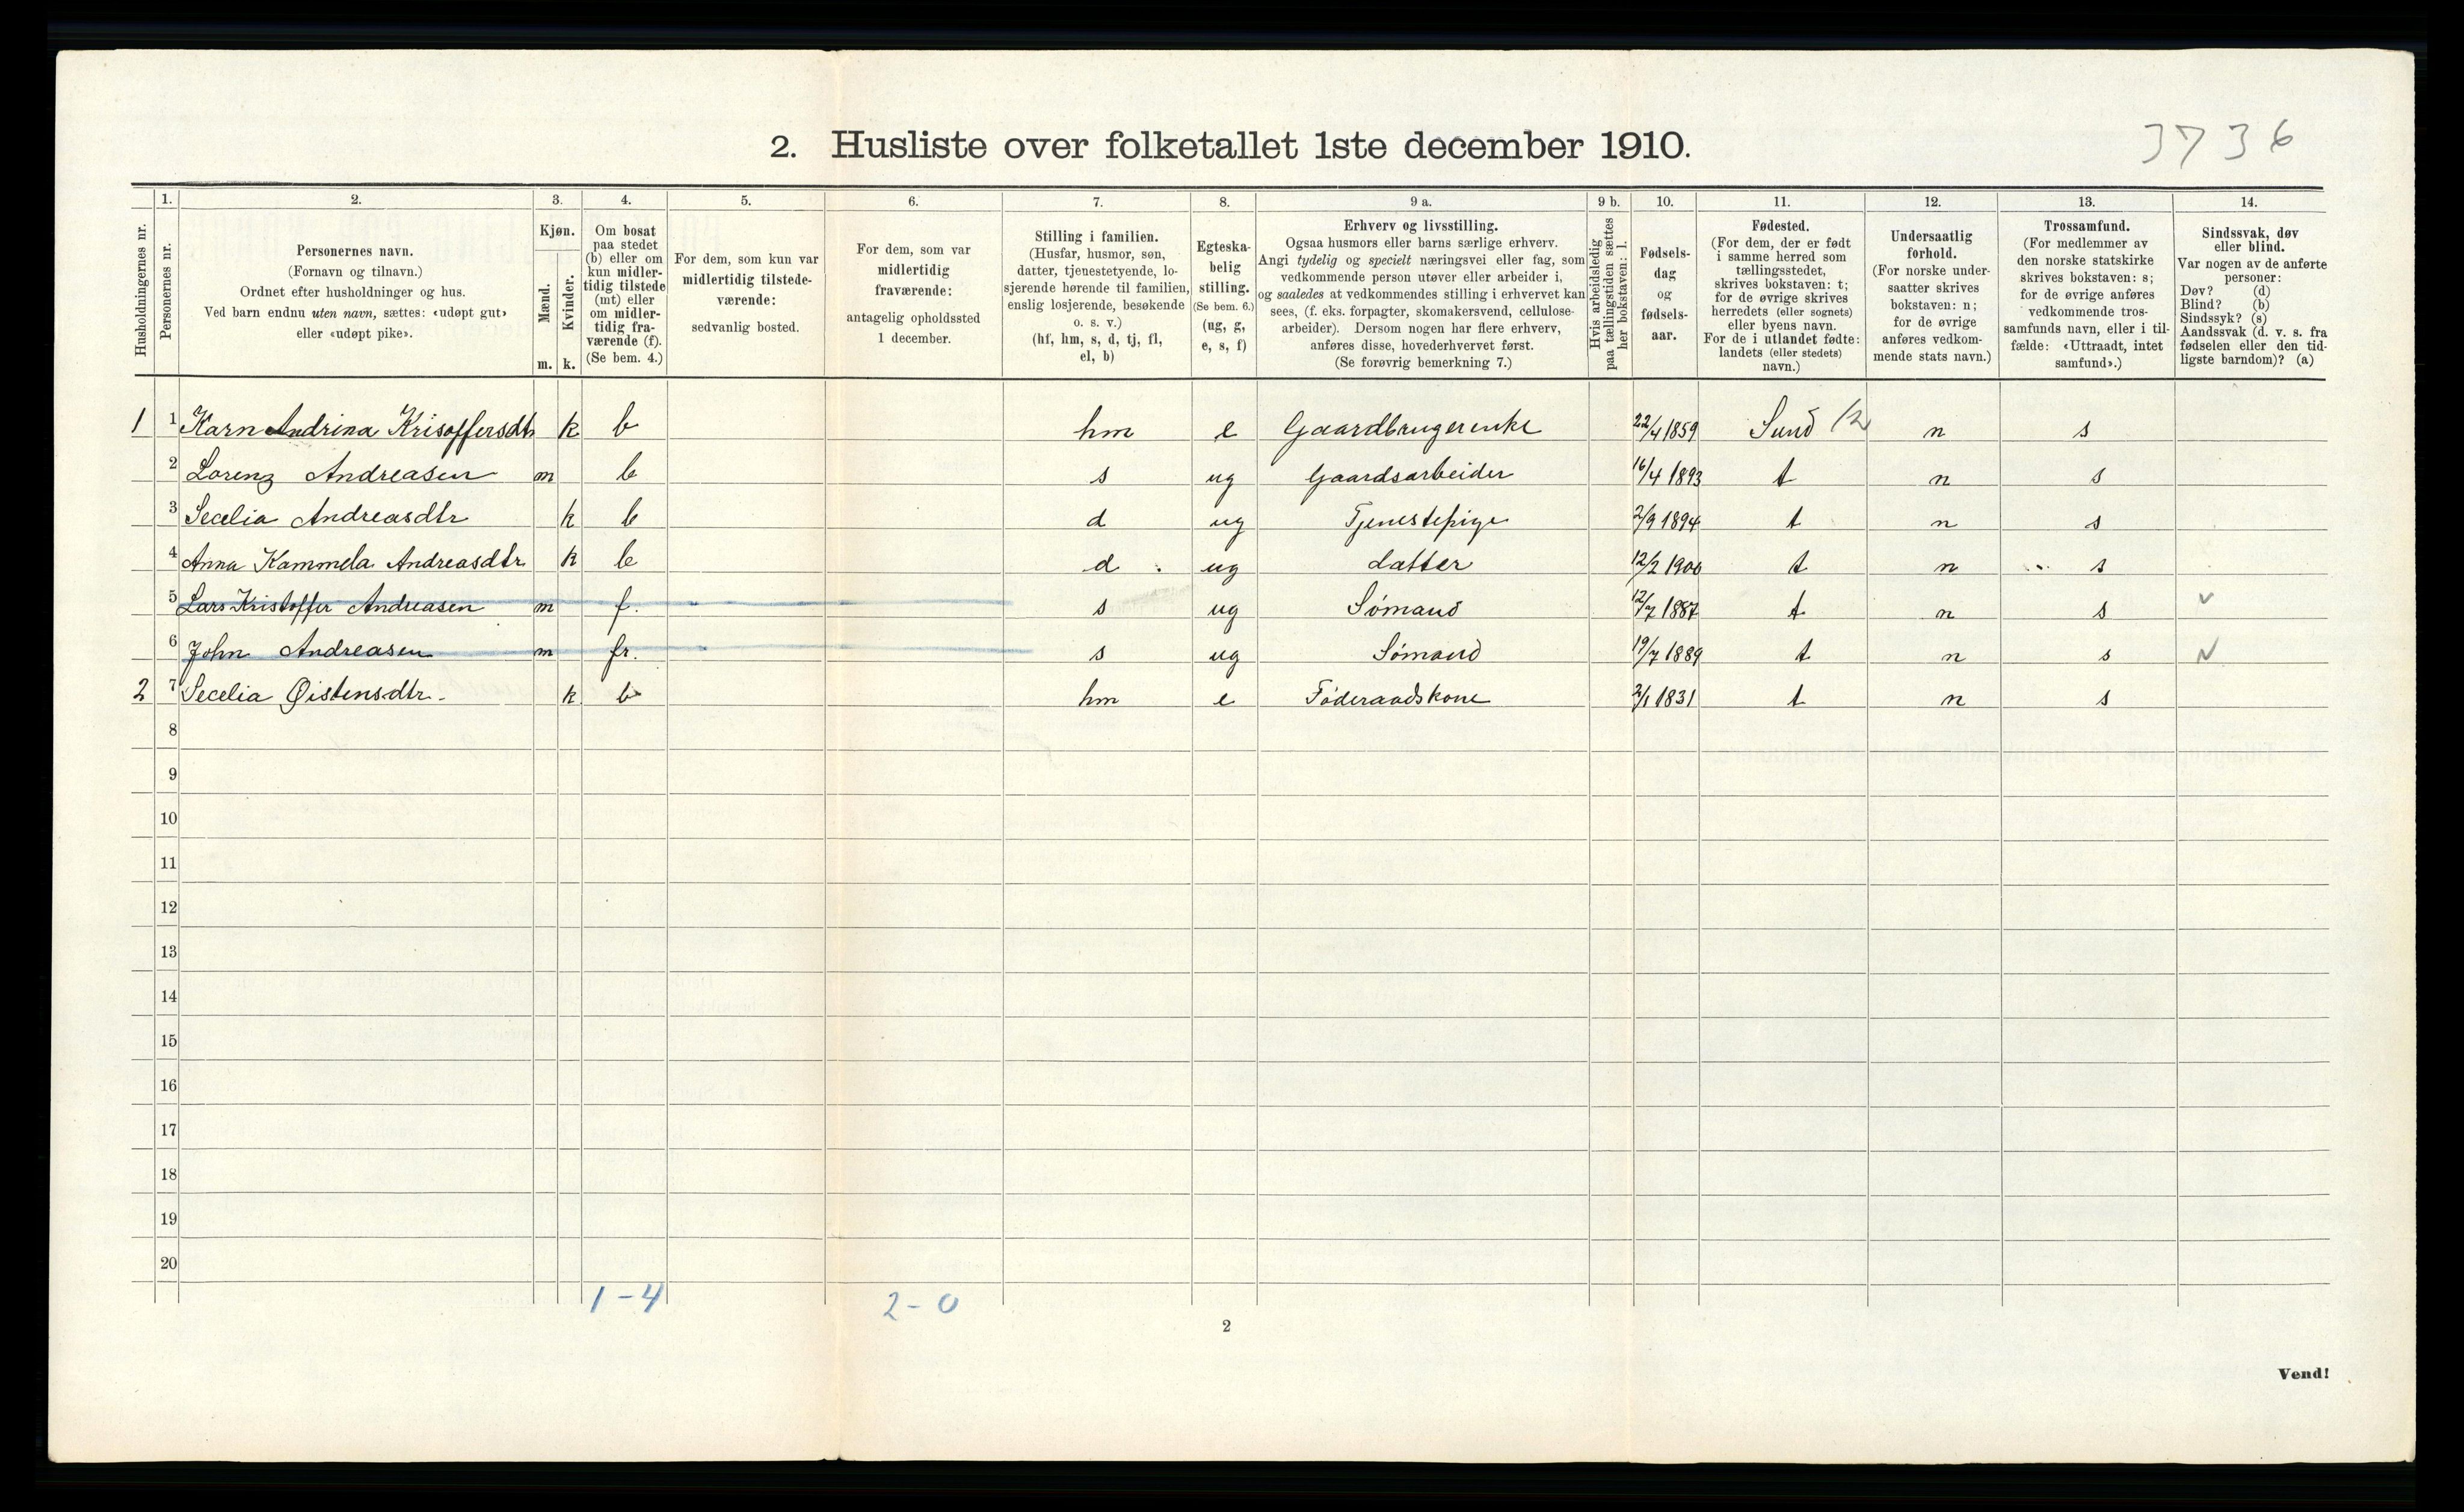 2. Husliste over folketallet 1ste december 1910.
3736
Husholdningernes nr.
1. Personernes nr.
2. Personernes navn. (Fornavn og tilnavn.) Ordnet efter husholdninger og hus. Ved barn endnu uten navn, sættes: «udøpt gut» eller «udøpt pike».
3. Kjøn. Mænd. m. Kvinder. k.
4. Om bosat paa stedet (b) eller om kun midlertidig tilstede (mt) eller om midlertidig fraværende (f). (Se bem. 4.)
5. For dem, som kun var midlertidig tilstedeværende: sedvanlig bosted.
6. For dem, som var midlertidig fraværende: antagelig opholdssted 1 december.
7. Stilling i familien. (Husfar, husmor, søn, datter, tjenestetyende, losjerende hørende til familien, enslig losjerende, besøkende o. s. v.) (hf, hm, s, d, tj, fl, el, b)
8. Egteskabelig stilling. (Se bem. 6.) (ug, g, e, s, f)
9 a. Erhverv og livsstilling. Ogsaa husmors eller barns særlige erhverv. Angi tydelig og specielt næringsvei eller fag, som vedkommende person utøver eller arbeider i, og saaledes at vedkommendes stilling i erhvervet kan sees, (f. eks. forpagter, skomakersvend, cellulosearbeider). Dersom nogen har flere erhverv, anføres disse, hovederhvervet først. (Se forøvrig bemerkning 7.)
9 b. Hvis arbeidsledig paa tællingstiden sættes her bokstaven: l.
10. Fødselsdag og fødselsaar.
11. Fødested. (For dem, der er født i samme herred som tællingsstedet, skrives bokstaven: t; for de øvrige skrives herredets (eller sognets) eller byens navn. For de i utlandet fødte: landets (eller stedets) navn.)
12. Undersaatlig forhold. (For norske undersaatter skrives bokstaven: n; for de øvrige anføres vedkommende stats navn.)
13. Trossamfund. (For medlemmer av den norske statskirke skrives bokstaven: s; for de øvrige anføres vedkommende trossamfunds navn, eller i tilfælde: «Uttraadt, intet samfund».)
14. Sindssvak, døv eller blind. Var nogen av de anførte personer: Døv? (d) Blind? (b) Sindssyk? (s) Aandssvak (d. v. s. fra fødselen eller den tidligste barndom)? (a)
1 1 Karn Andrina Krisoffersdtr k b hm e Gaardbrugerenke 22/4 1859 Sund 12 n s
2 Lorenz Andreasen m b s ug Gaardsarbeider 16/4 1893 t n s
3 Secelia Andreasdtr k b d ug Tjenestepige 2/9 1894 t n s
4 Anna Kammela Andreasdtr k b d ug datter 12/2 1900 t n s
5 Lars Kristoffer Andreasen m f. s ug Sømand 12/7 1887 t n s v
6 John Andreasen m fr. s ug Sømand 19/7 1889 t n s v
2 7 Secelia Øistensdtr. k b hm e Føderaadskone 2/1 1831 t n s
8
9
10
11
12
13
14
15
16
17
18
19
20
1-4 2-0
2
Vend!